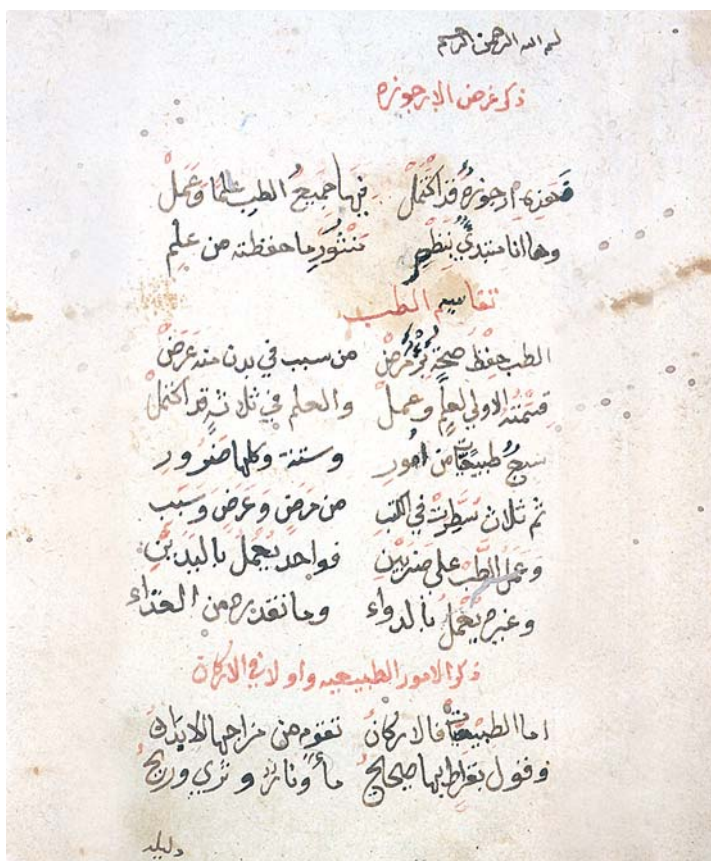 بسم الله الرحمن الرحيم
ذكر غرض الارجوزه
فهذه ارجوزة قد اكتمل فيها جميع الطب علما وعمل
وها انا مبتدئ بنظم منثور ما حفظته من علم
تقاسيم الطب
الطب حفظ صحة برء مرض من سبب في بدن منه عرض
قسمته الاولي لعلم وعمل والعلم في ثلاثة قد اكتمل
سبع طبيعيات من امور وستة وكلها ضرور
ثم ثلاث سطرت في الكتب من مرض وعرض وسبب
وعمل الطب على ضربين فواحد يعمل باليدين
وغيره يعمل بالدواء وما تقدره من الغذاء
ذكر الامور الطبيعيه واولا في الاركان
اما الطبيعيات فالاركان تقوم من مزاجها الابدان
وقول بقراط بها صحيح ماء ونار وثري وريح
دليله